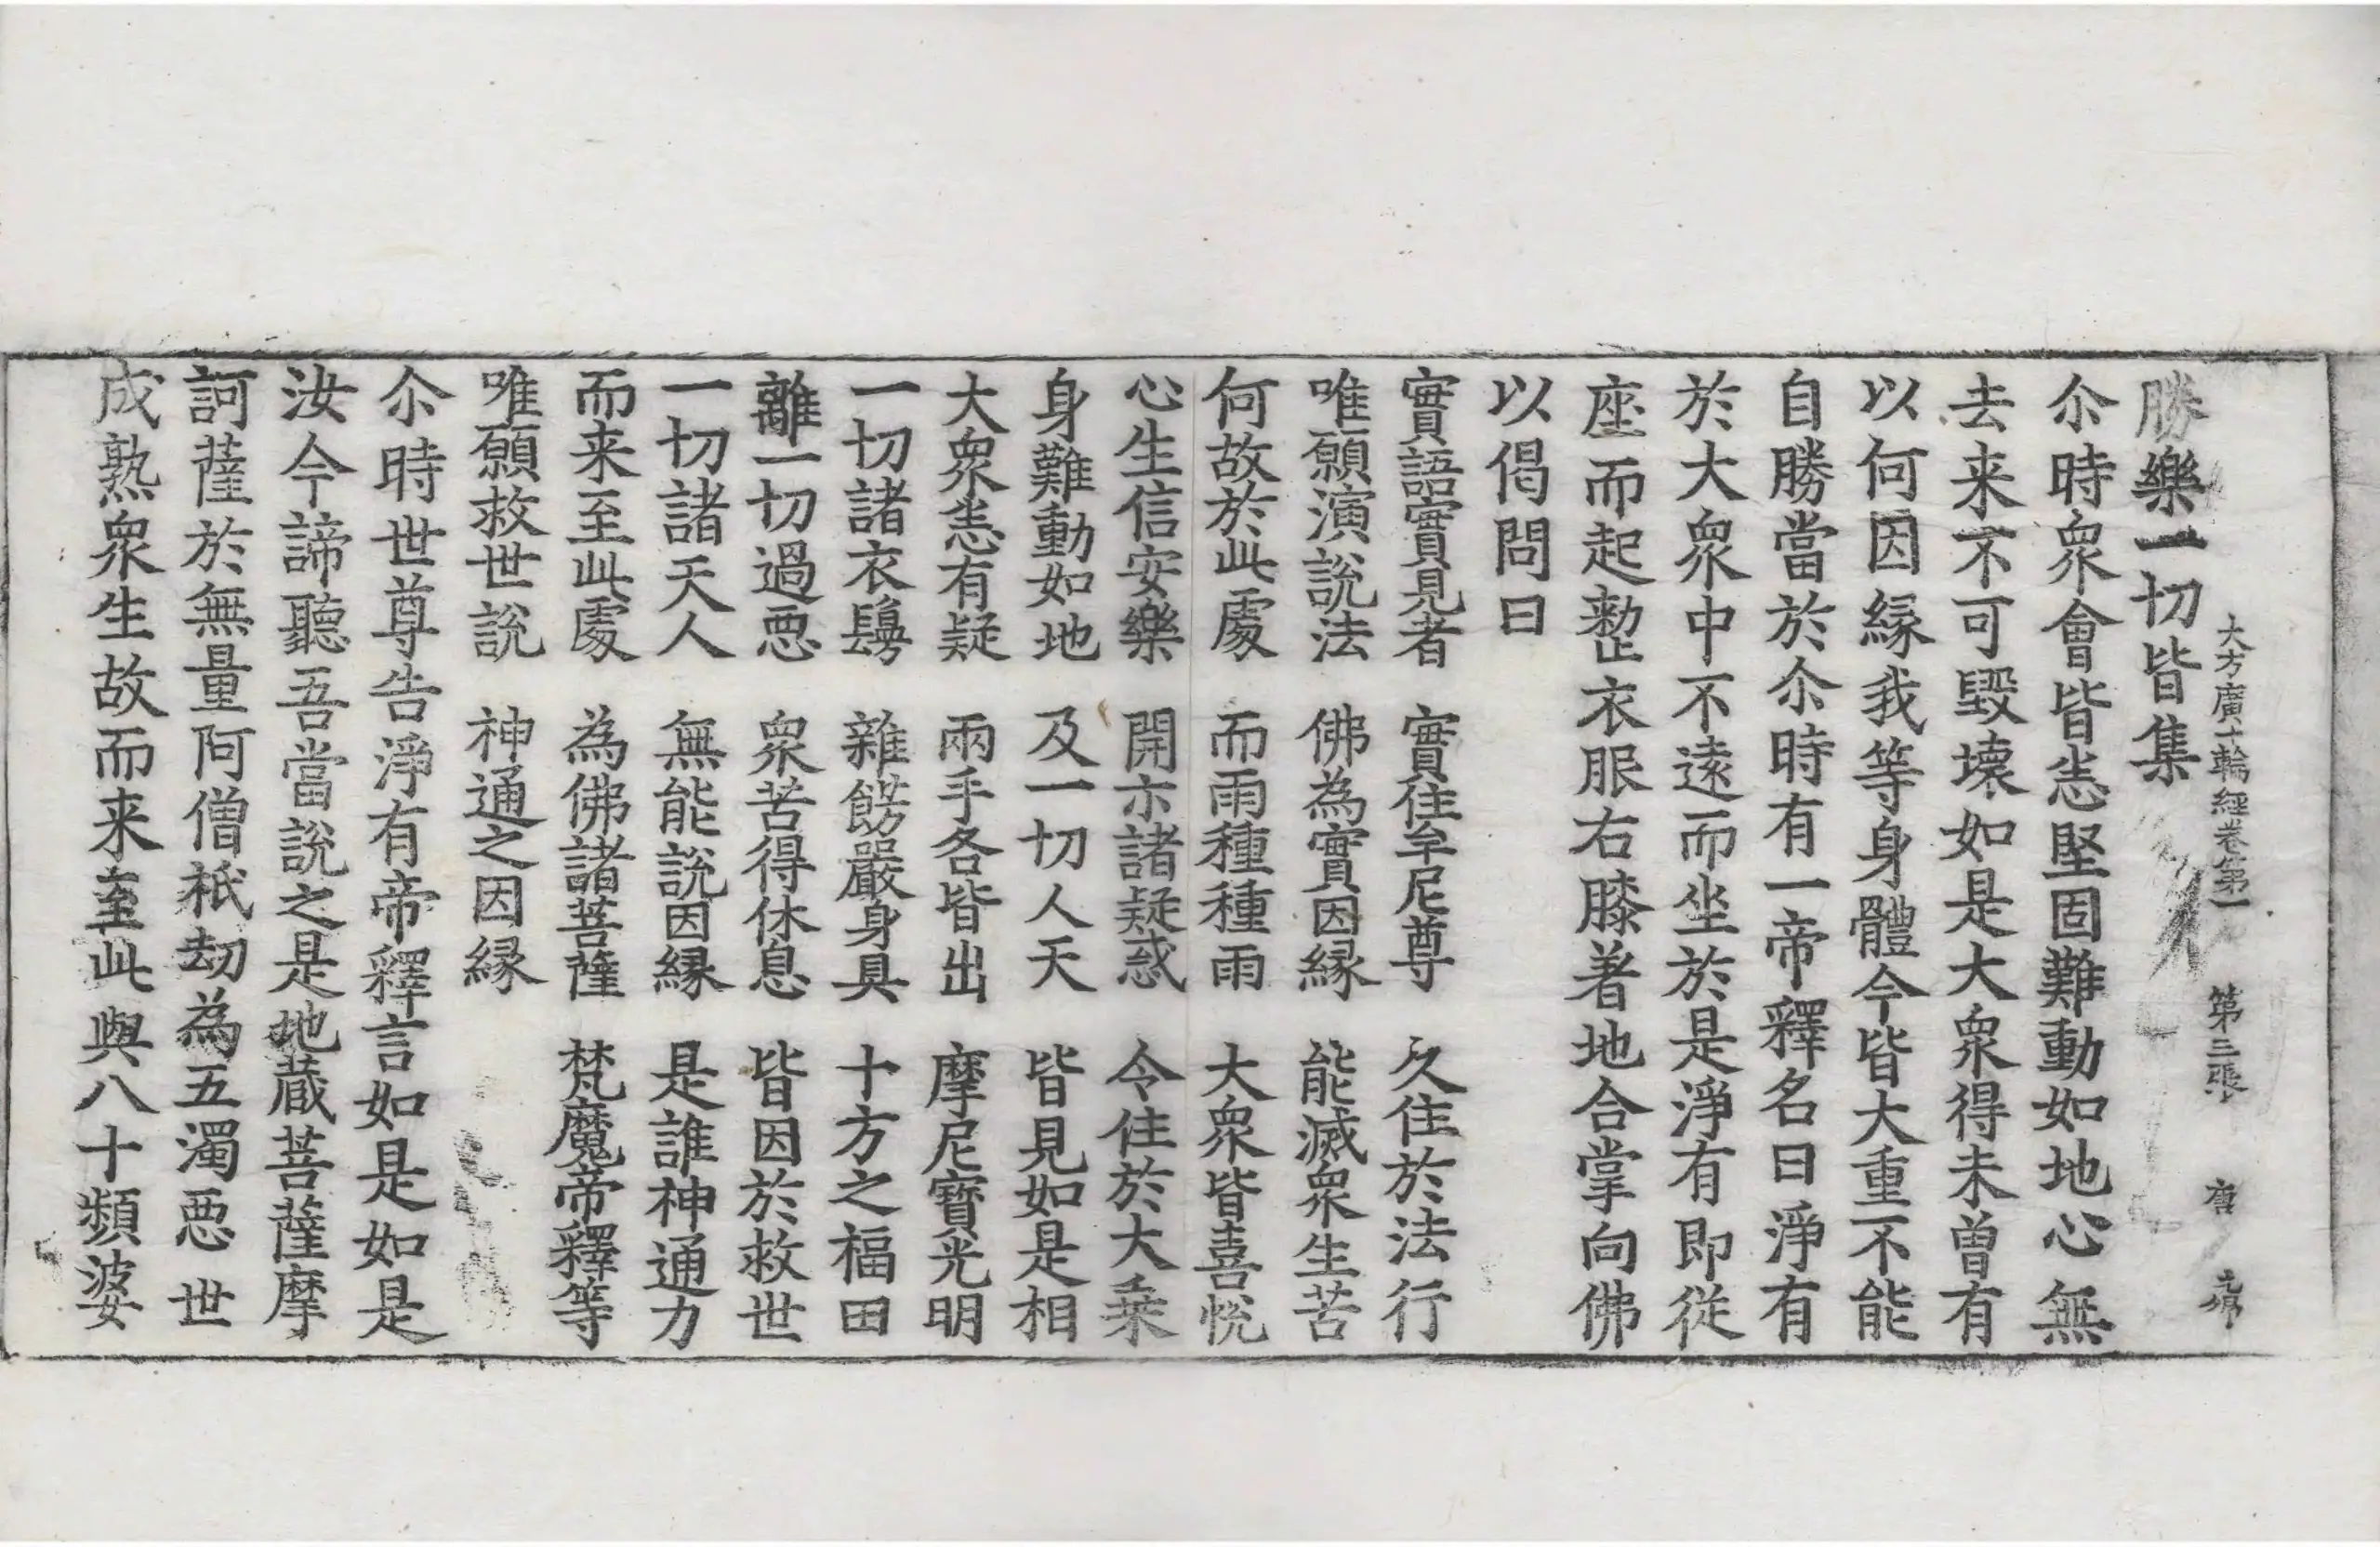 大方廣十輪經卷第一 第三張 唐
勝樂一切皆集
尒時眾會皆恙堅固難動如地心無
去来不可毀壞如是大眾得未曾有
以何因縁我等身體今皆大重不能
自勝當於尒時有一帝釋名曰淨有
於大眾中不遠而坐於是淨有即從
座而起整衣服右膝著地合掌向佛
以偈問曰
實語實見者 實住牟尼尊 久住於法行
唯願演說法 佛為實因縁 能滅眾生苦
何故於此處 而雨種種雨 大眾皆喜悅
心生信安樂 開示諸疑惑 令住於大乗
身難動如地 及一切人天 皆見如是相
大眾恙有疑 兩手各皆出 摩尼寶光明
一切諸衣鬘 雜餝嚴身具 十方之福田
離一切過悪 眾苦得休息 皆因於救世
一切諸天人 無能說因縁 是誰神通力
而来至此處 為佛諸菩薩 梵魔帝釋等
唯願救世說 神通之因縁
尒時世尊告淨有帝釋言如是如是
汝今諦聽吾當說之是地蔵菩薩摩
訶薩於無量阿僧祇劫為五濁悪世
成熟眾生故而来至此與八十頻婆